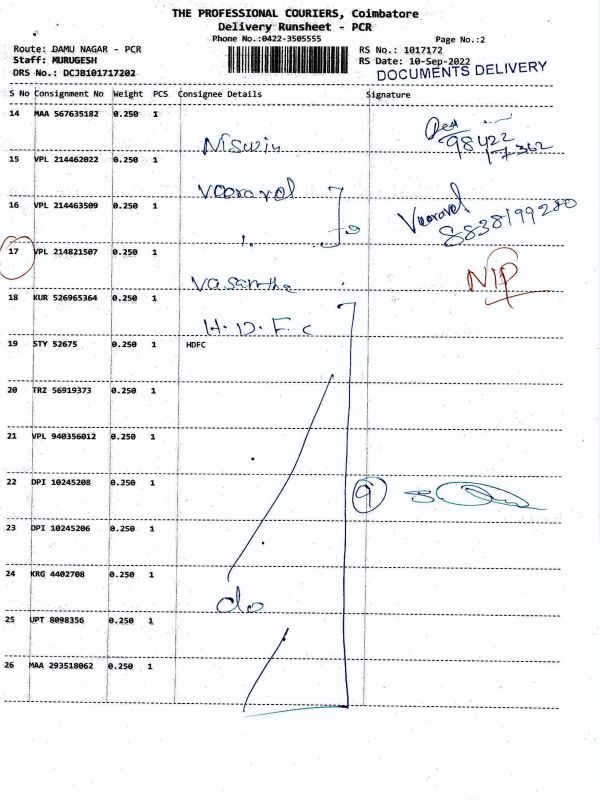 THE PROFESSIONAL COURIERS, Coimbatore
Delivery Runsheet - PCR
Phone No.:0422-3505555
Page No.:2
Route: DAMU NAGAR - PCR
RS No.: 1017172
Staff: MURUGESH
RS Date: 10-Sep-2022
DRS No.: DCJB101717202
DOCUMENTS DELIVERY
S No Consignment No Weight PCS Consignee Details Signature
14 MAA 567635182 0.250 1
98422
17362
15 VPL 214462022 0.250 1
Veeravel
16 VPL 214463509 0.250 1
Veeravel
8838199280
17 VPL 214821507 0.250 1
Vasantha
NIP
18 KUR 526965364 0.250 1
H.D.F.C
19 STY 52675 0.250 1 HDFC
20 TRZ 56919373 0.250 1
21 VPL 940356012 0.250 1
22 DPI 10245208 0.250 1
9
23 DPI 10245206 0.250 1
24 KRG 4402708 0.250 1
do
25 UPT 8098356 0.250 1
26 MAA 293518062 0.250 1